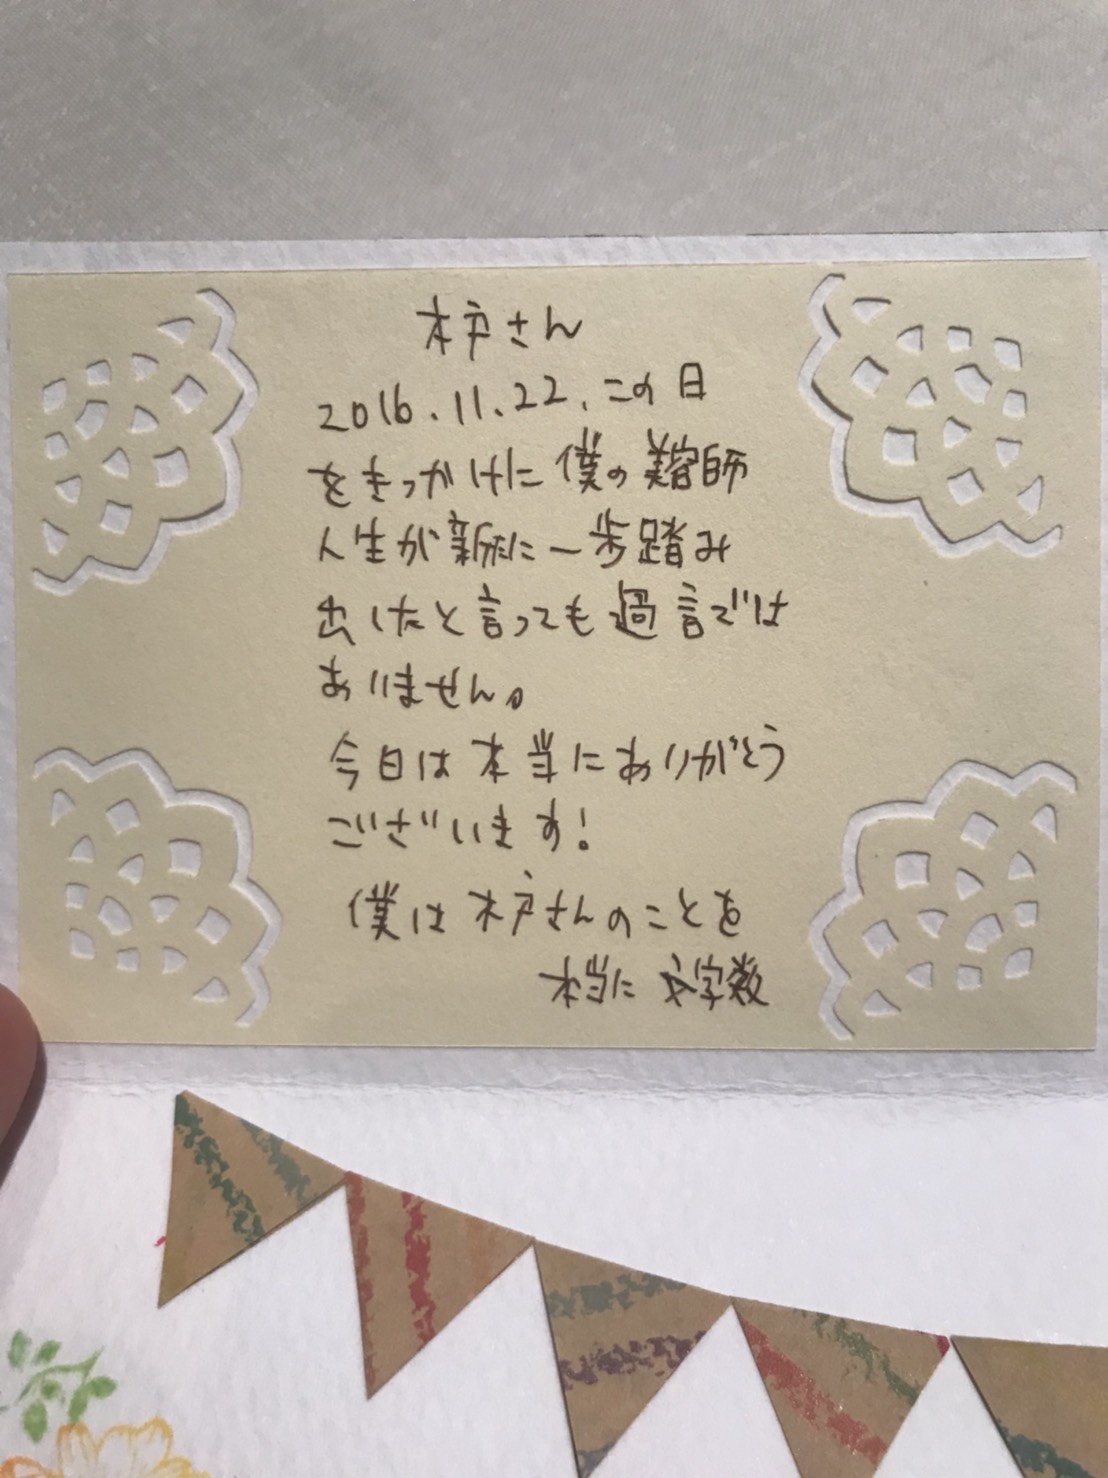 木戸さん
2016.11.22、この日
をきっかけに僕の美容師
人生が新たに一歩踏み
出したと言っても過言では
ありません。
今日は本当にありがとう
ございます!
僕は木戸さんのことを
本当に文字数